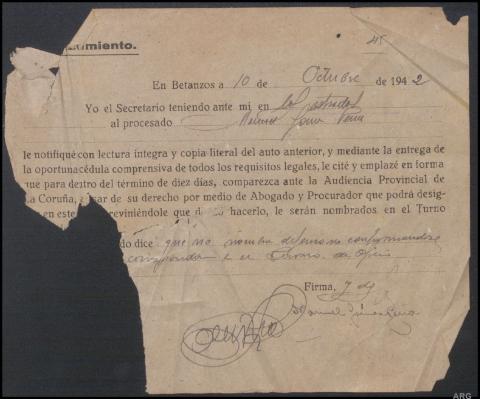 zamiento.
En Betanzos a 10 de Octubre de 1942
Yo el Secretario teniendo ante mi en
al procesado Manuel
le notifiqué con lectura íntegra y copia literal del auto anterior, y mediante la entrega de
la oportunacédula comprensiva de todos los requisitos legales, le cité y emplazé en forma
que para dentro del término de diez días, comparezca ante la Audiencia Provincial de
La Coruña, a usar de su derecho por medio de Abogado y Procurador que podrá desig-
en este previniéndole que de no hacerlo, le serán nombrados en el Turno
do dice que no nombra
el Turno de Oficio
Firma, y
Manuel
ARG